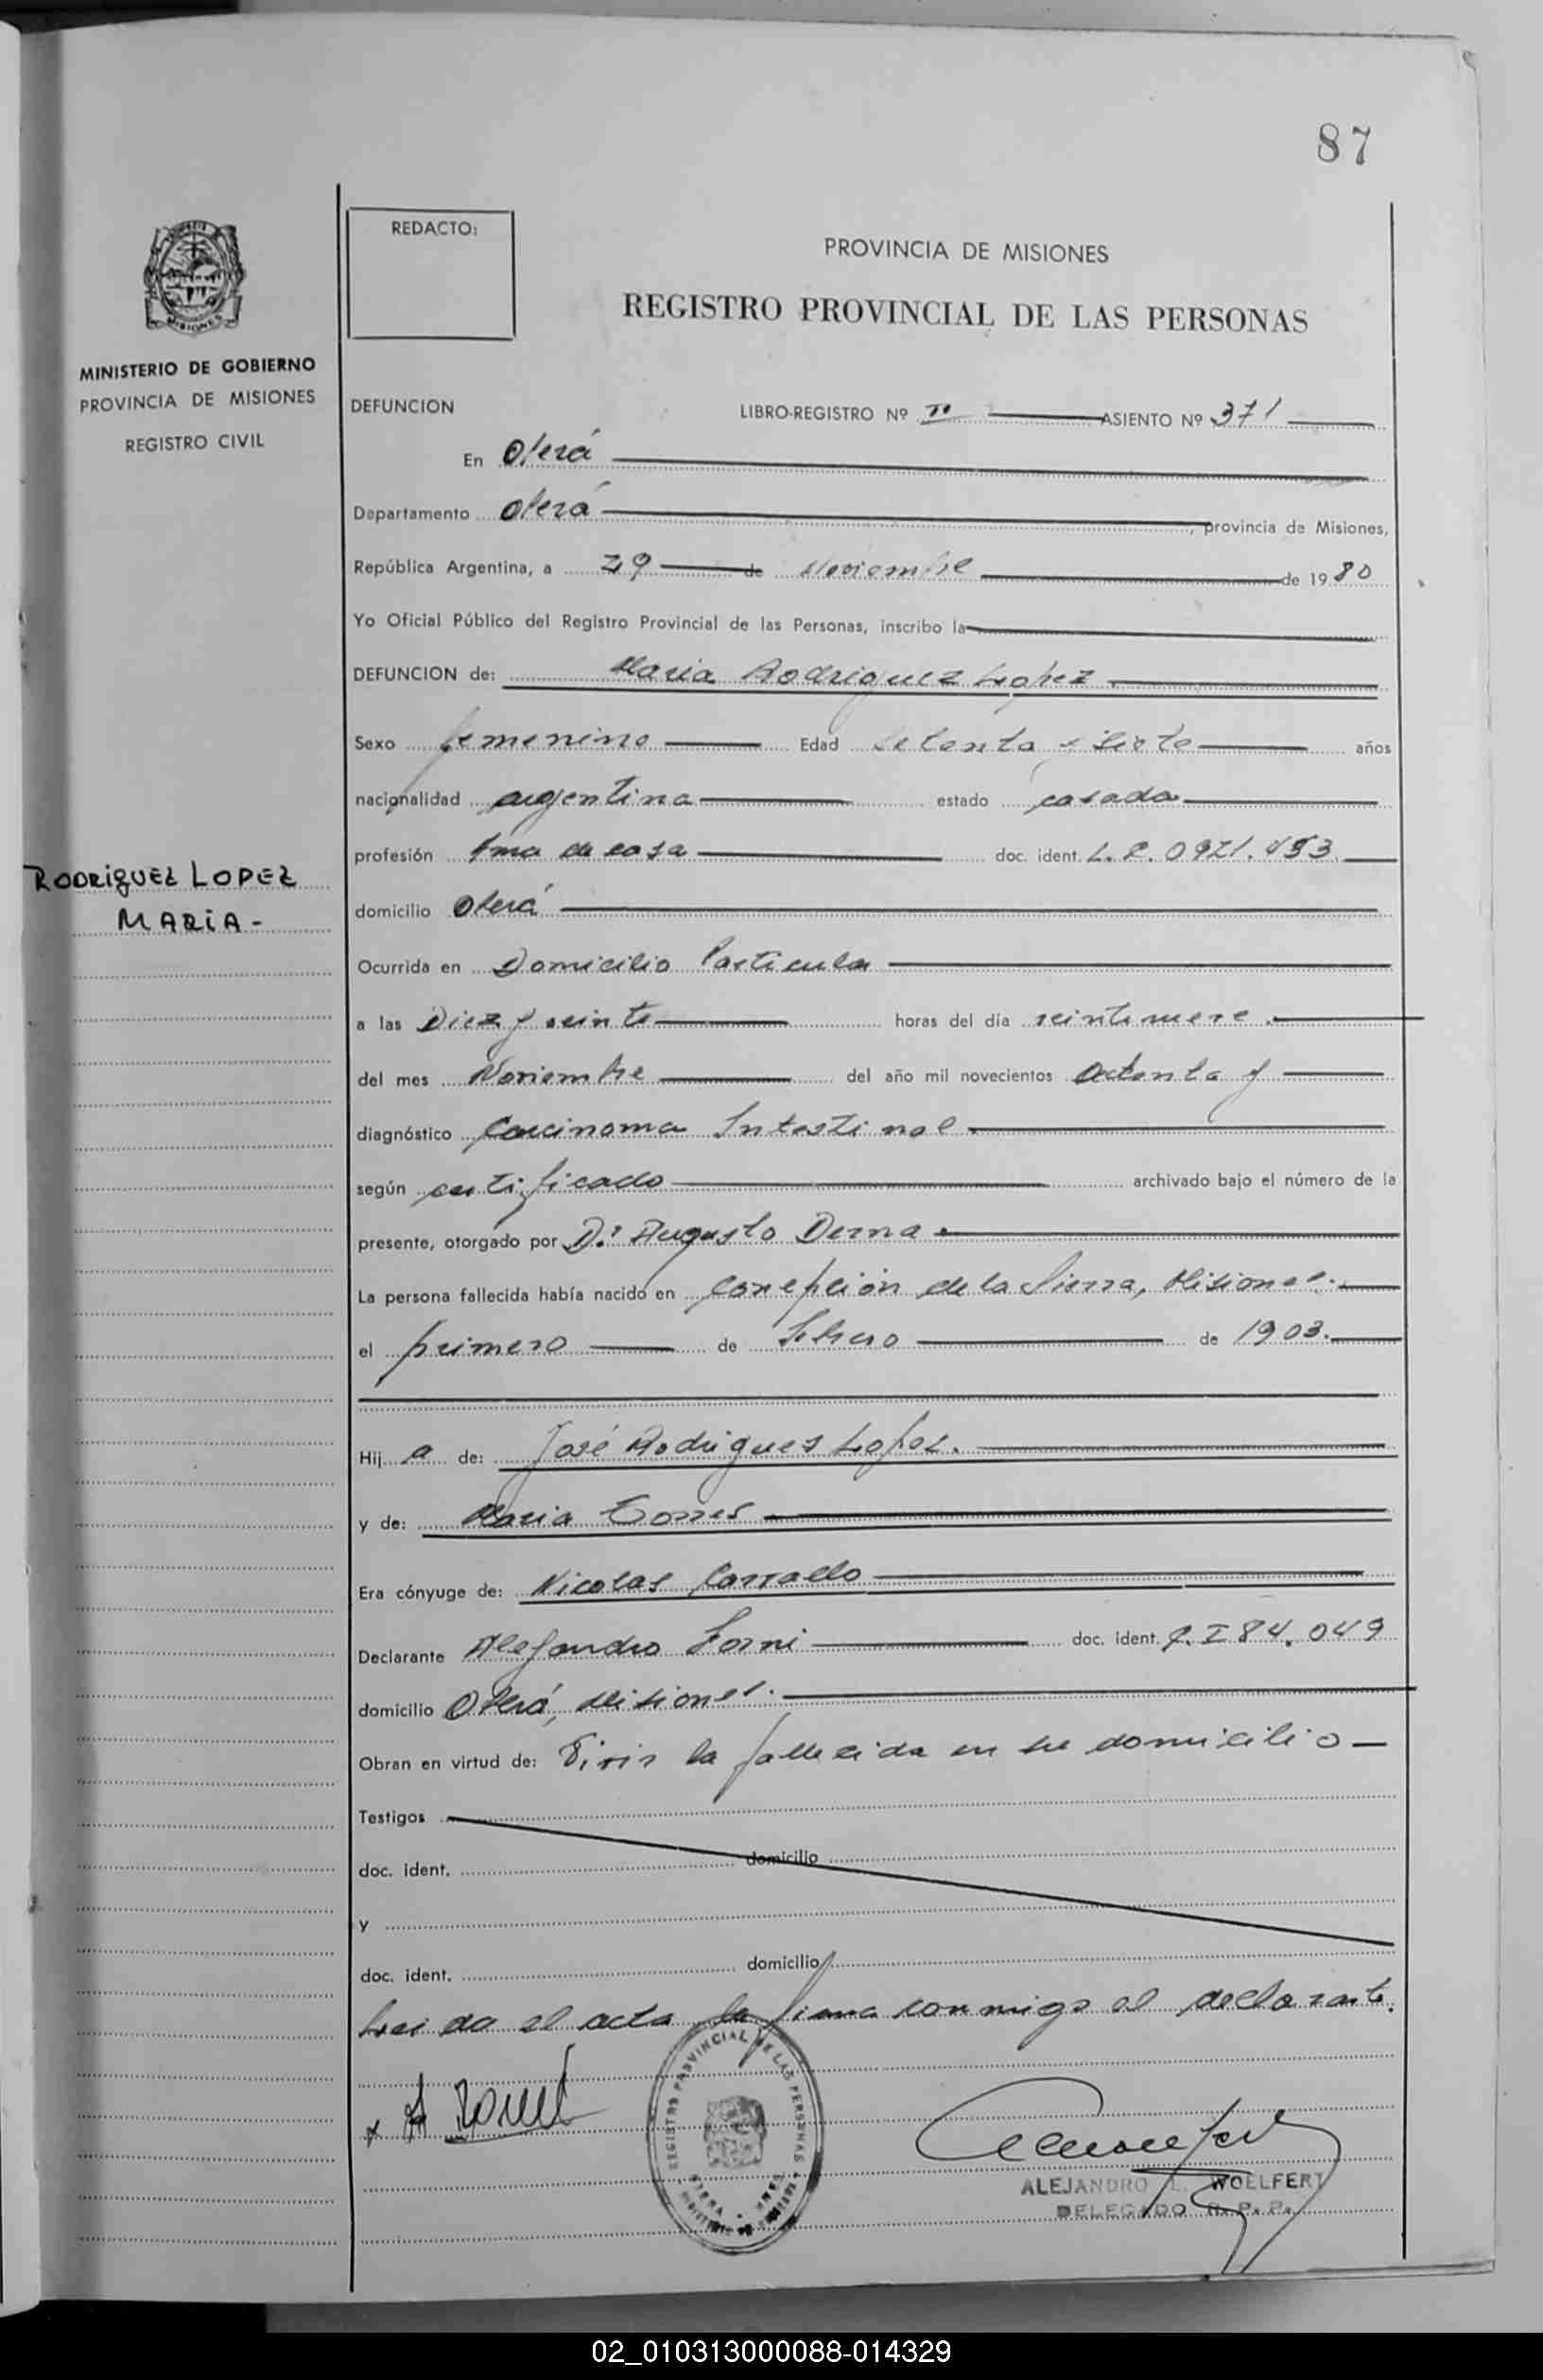 87
REDACTO:
PROVINCIA DE MISIONES
REGISTRO PROVINCIAL DE LAS PERSONAS
MISIONES
MINISTERIO DE GOBIERNO
PROVINCIA DE MISIONES
REGISTRO CIVIL
DEFUNCION LIBRO-REGISTRO Nº II ASIENTO Nº 371
En Oberá
Departamento Oberá, provincia de Misiones,
República Argentina, a 29 de Noviembre de 1980
Yo Oficial Público del Registro Provincial de las Personas, inscribo la
DEFUNCION de: Maria Rodriguez Lopez
Sexo femenino Edad setenta y siete años
nacionalidad argentina estado casada
profesión Ama de casa doc. ident. L.C. 0921.453
RODRIGUEZ LOPEZ
MARIA-
domicilio Oberá
Ocurrida en Domicilio Particular
a las Diez y veinte horas del día veintinueve
del mes Noviembre del año mil novecientos ochenta y
diagnóstico Carcinoma Intestinal
según certificado archivado bajo el número de la
presente, otorgado por Dr. Augusto Derna
La persona fallecida había nacido en Concepción de la Sierra, Misiones.
el primero de Febrero de 1903.
Hij a de: José Rodrigues Lopez.
y de: Maria Torres
Era cónyuge de: Nicolas Carvallo
Declarante Alejandro Forni doc. ident. C.I 84.049
domicilio Oberá, Misiones.
Obran en virtud de: Vivir la fallecida en su domicilio
Testigos
doc. ident. domicilio
y
doc. ident. domicilio
Leida el acta la firma conmigo el declarante.
REGISTRO PROVINCIAL DE LAS PERSONAS
ALEJANDRO L. WOELFERT
DELEGADO R. P. P.
02_010313000088-014329